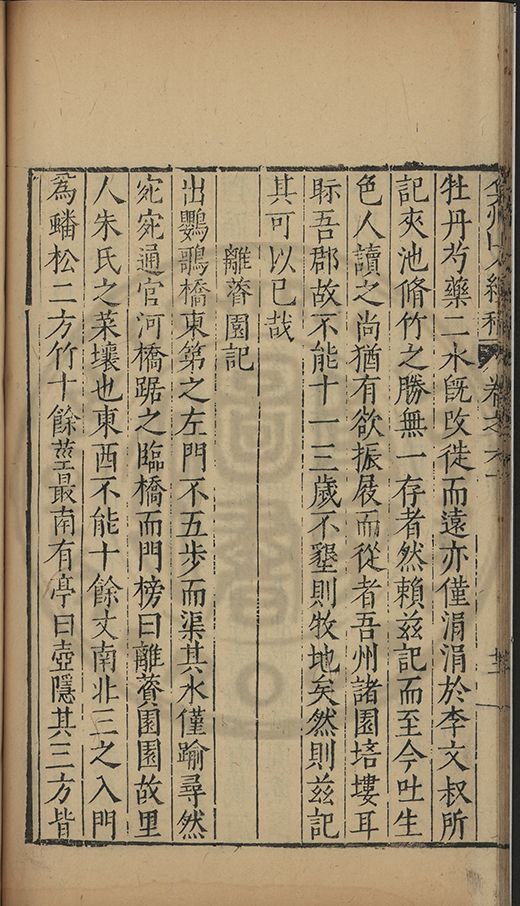 弇州山人續稿 卷之六十
牡丹芍藥二水旣改徙而遠亦僅涓涓於李文叔所
記夾池脩竹之勝無一存者然賴茲記而至今吐生
色人讀之尚猶有欲振屐而從者吾州諸園培塿耳
眎吾郡故不能十一三歲不墾則牧地矣然則茲記
其可以已哉
離薋園記
出鸚鵡橋東第之左門不五步而渠其水僅踰尋然
宛宛通官河橋踞之臨橋而門榜曰離薋園園故里
人朱氏之菜壤也東西不能十餘丈南北三之入門
爲蟠松二方竹十餘莖最南有亭曰壺隱其三方皆